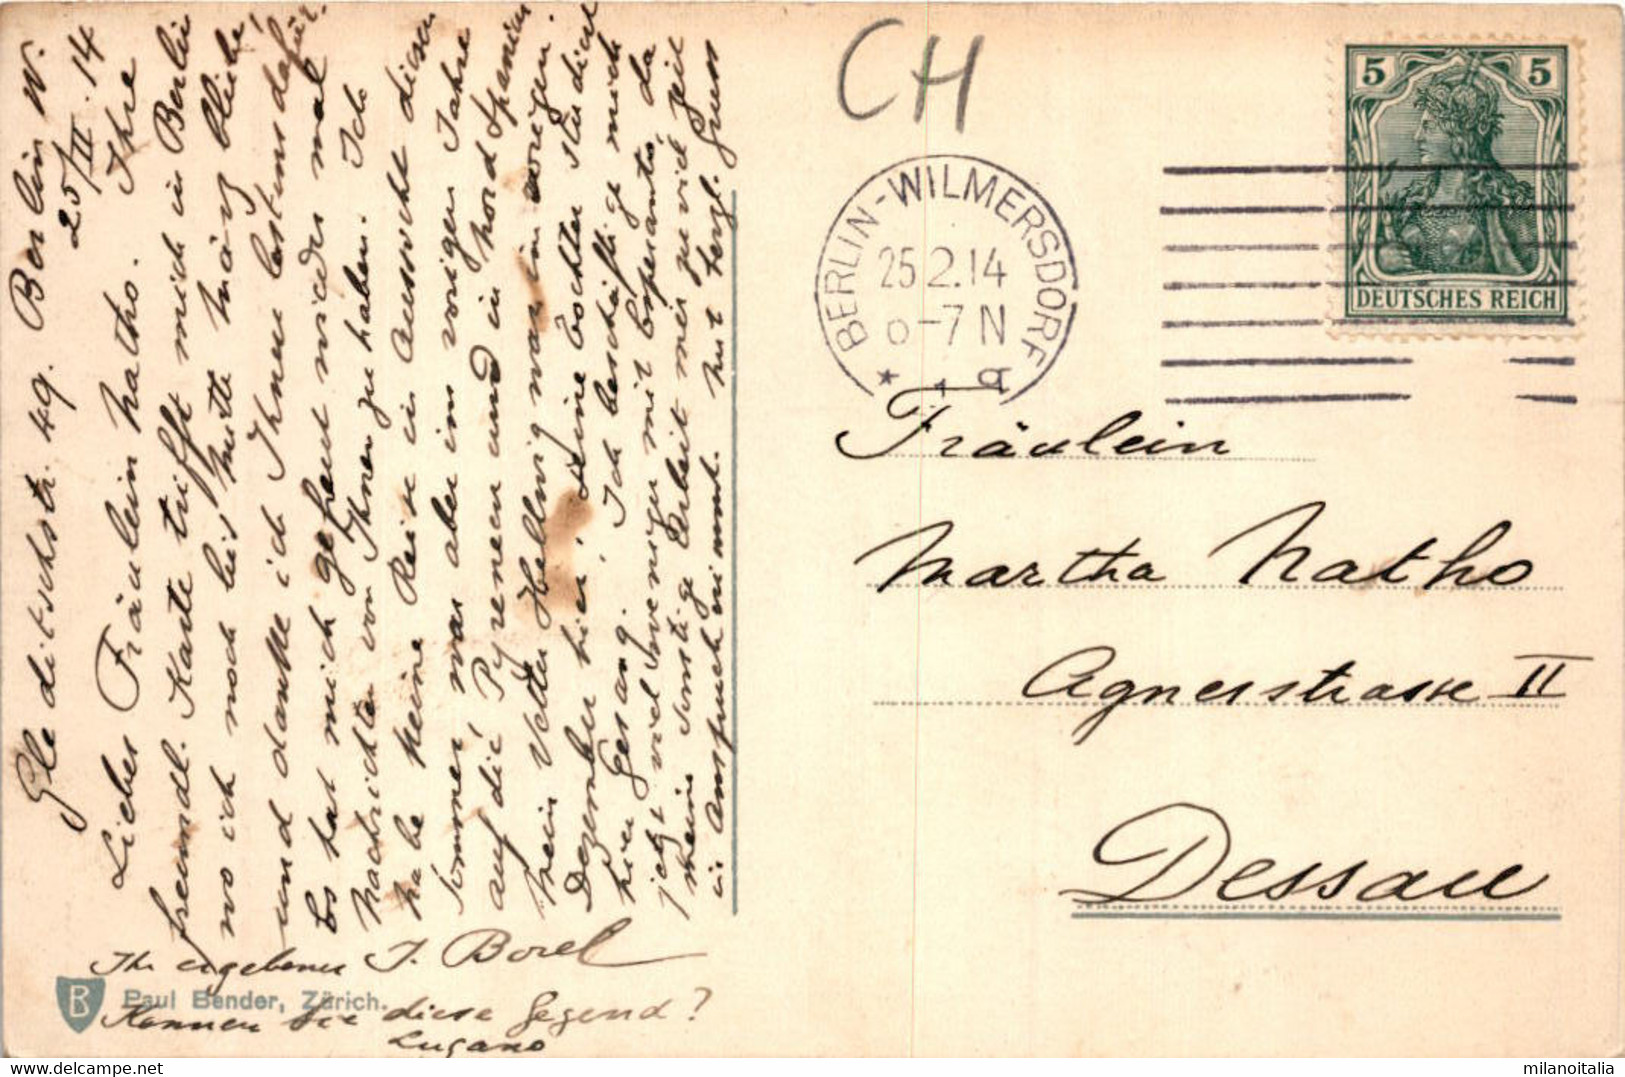 Gleditschstr. 49. Berlin W.
25/II. 14
Liebes Fräulein Natho. Ihre
freundl. Karte trifft mich in Berlin
wo ich noch bis Mitte März bleibe,
und danke ich Ihnen bestens dafür.
Es hat mich gefreut wieder mal
Nachrichten von Ihnen zu haben. Ich
habe keine Reise in Aussicht diesen
Sommer war aber im vorigen Jahre
auf die Pyreneen und in Nord Spanien
Mein Vetter Hellwig war im vorigen
Dezember hier, seine Tochter studiert
hier Gesang. Ich beschäftige mich
jetzt viel weniger mit Esperanto, da
meine sonstige Arbeit mir zu viel Zeit
in Anspruch nimmt. Mit herzl. Gruss
Ihr ergebener J. Borel
Paul Bender, Zürich.
Kennen Sie diese Gegend?
Lugano
CH
5 5
DEUTSCHES REICH
BERLIN-WILMERSDORF
25.2.14
6-7 N
* 1 a
Fräulein
Martha Natho
Agnesstrasse II
Dessau
milanoitalia